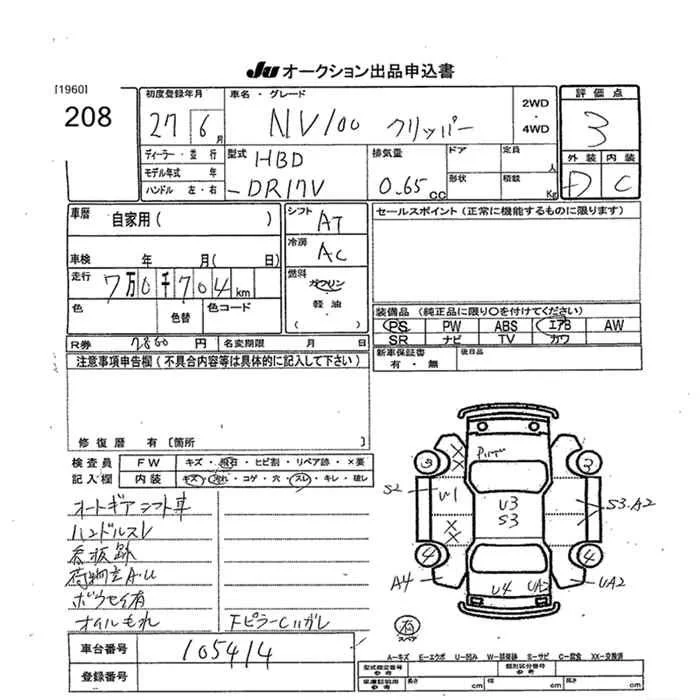 JU オークション出品申込書
[1960]
208
初度登録年月
27 6月
車名・グレード
NV100 クリッパー
2WD
・
4WD
評価点
3
外装 内装
D C
ディーラー・並行
モデル年式 年
ハンドル 左・右
型式
HBD
-DR17V
排気量
0.65 CC
ドア
定員
人
形状
積載
Kg
車歴 自家用( )
車検 年 月( 日)
走行 7万0千704 km
色
色替
色コード
シフト AT
冷房 AC
燃料
ガソリン
軽油
( )
セールスポイント(正常に機能するものに限ります)
装備品(純正品に限り○を付けてください)
PS PW ABS エアB AW
SR ナビ TV カワ
新車保証書
有・無
後日品
R券 7860 円
名変期限 月 日
注意事項申告欄(不具合内容等は具体的に記入して下さい)
修復歴 有〔箇所 〕
検査員 FW キズ・飛石・ヒビ割・リペア跡・×要
記入欄 内装 キズ・汚れ・コゲ・穴・スレ・キレ・破レ
オートギアシフト車
ハンドルスレ
看板跡
荷物立A・U
ボウセイ有
オイルもれ
FピラーCハガレ
車台番号 105414
登録番号
S2
U1
U3
S3
S3.A2
3
3
4
4
A4
U4
UA2
UA2
有
スペア
A-キズ E-エクボ U-凹み W-補修跡 S-サビ C-腐食 XX-交換済
型式指定番号
参考
類別区分番号
参考
車庫証明用
参考
長さ cm
幅 cm
高さ cm